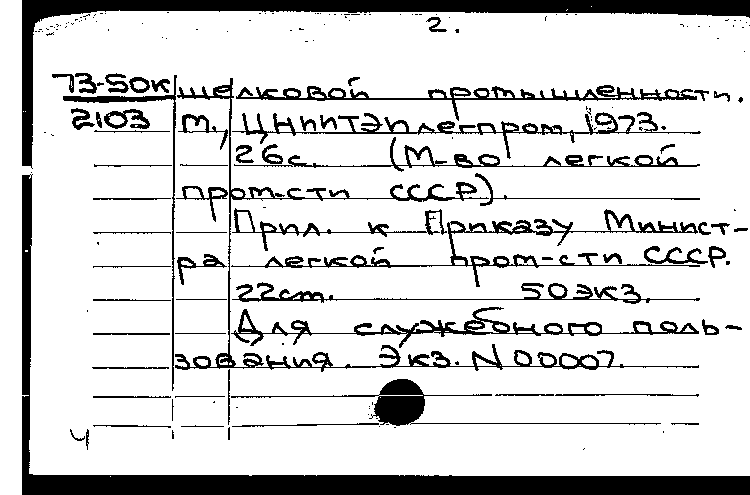 2.
73-50к шелковой промышленности.
2103 М., ЦНИИТЭИлегпром, 1973.
26с. (М-во легкой
пром-сти СССР).
Прил. к Приказу Минист-
ра легкой пром-сти СССР.
22см. 50экз.
Для служебного поль-
зования. Экз. N 00007.
Ч